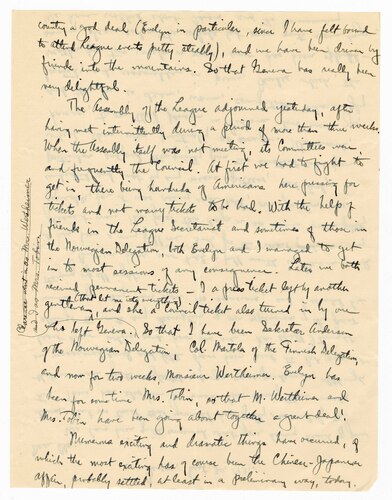 country a good deal (Evelyn in particular, since I have felt bound
to attend League events pretty steadily), and we have been driven by
friends into the mountains. So that Geneva has really been
very delightful.
The Assembly of the League adjourned yesterday, after
having met intermittently during a period of more than three weeks.
When the Assembly itself was not meeting, its Committees were
and frequently the Council. At first we had to fight to
get in, there being hundreds of Americans here pressing for
tickets and not many tickets to be had. With the help of
friends in the League Secretariat and sometimes of those in
the Norwegian Delegation, both Evelyn and I managed to get
in to most sessions of any consequence. Later we both
received permanent tickets - I a press ticket left by another
gentleman, (that let me into everything) and she a Council ticket also turned in by one
who left Geneva. So that I have been Sekretor Andersen
of the Norwegian Delegation, Col. Matola of the Finnish Delegation,
and now for two weeks, Monsieur Wertheimer. Evelyn has
been for sometime Mrs. Tobin, so that M. Wertheimer and
Mrs. Tobin have been going about together a great deal!
Numerous exciting and dramatic things have occurred, of
which the most exciting has of course been the Chinese-Japanese
affair, probably settled, at least in a preliminary way, today.
and I as Mrs. Tobin